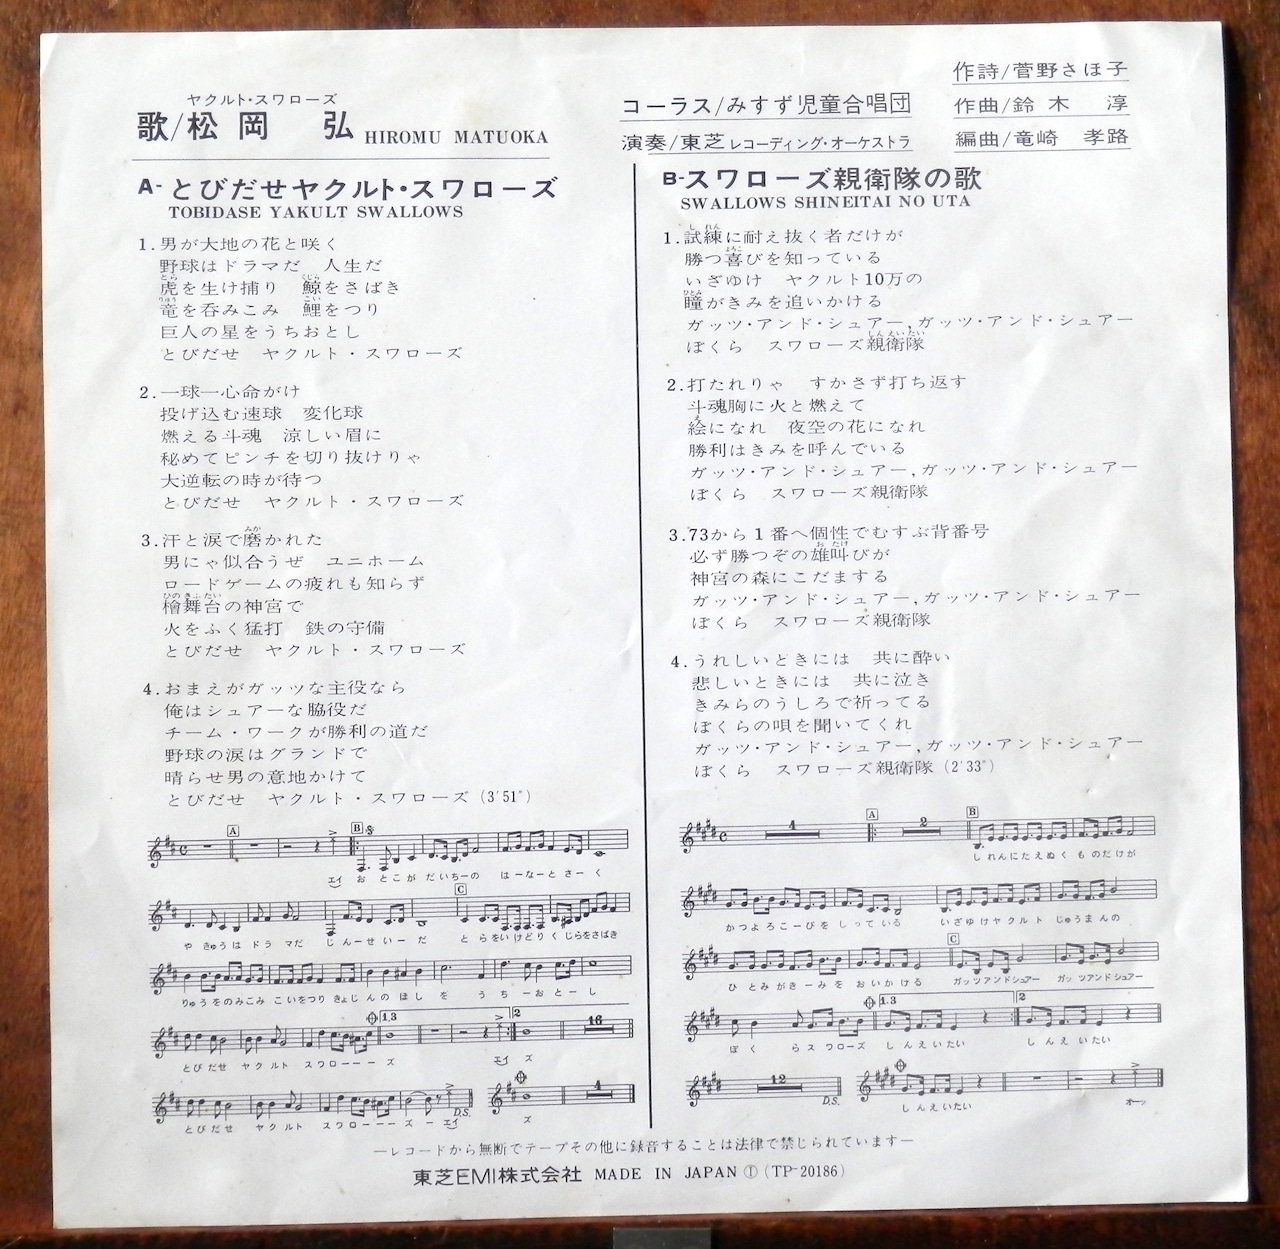 ヤクルト・スワローズ
歌/松岡 弘 HIROMU MATUOKA
コーラス/みすず児童合唱団
演奏/東芝レコーディング・オーケストラ
作詩/菅野さほ子
作曲/鈴木 淳
編曲/竜崎 孝路
A-とびだせヤクルト・スワローズ
TOBIDASE YAKULT SWALLOWS
1.男が大地の花と咲く
野球はドラマだ 人生だ
虎を生け捕り 鯨をさばき
竜を呑みこみ 鯉をつり
巨人の星をうちおとし
とびだせ ヤクルト・スワローズ
2.一球一心命がけ
投げ込む速球 変化球
燃える斗魂 涼しい眉に
秘めてピンチを切り抜けりゃ
大逆転の時が待つ
とびだせ ヤクルト・スワローズ
3.汗と涙で磨かれた
男にゃ似合うぜ ユニホーム
ロードゲームの疲れも知らず
檜舞台の神宮で
火をふく猛打 鉄の守備
とびだせ ヤクルト・スワローズ
4.おまえがガッツな主役なら
俺はシュアーな脇役だ
チーム・ワークが勝利の道だ
野球の涙はグランドで
晴らせ男の意地かけて
とびだせ ヤクルト・スワローズ(3'51")
B-スワローズ親衛隊の歌
SWALLOWS SHINEITAI NO UTA
1.試練に耐え抜く者だけが
勝つ喜びを知っている
いざゆけ ヤクルト10万の
瞳がきみを追いかける
ガッツ・アンド・シュアー,ガッツ・アンド・シュアー
ぼくら スワローズ親衛隊
2.打たれりゃ すかさず打ち返す
斗魂胸に火と燃えて
絵になれ 夜空の花になれ
勝利はきみを呼んでいる
ガッツ・アンド・シュアー,ガッツ・アンド・シュアー
ぼくら スワローズ親衛隊
3.73から1番へ個性でむすぶ背番号
必ず勝つぞの雄叫びが
神宮の森にこだまする
ガッツ・アンド・シュアー,ガッツ・アンド・シュアー
ぼくら スワローズ親衛隊
4.うれしいときには 共に酔い
悲しいときには 共に泣き
きみらのうしろで祈ってる
ぼくらの唄を聞いてくれ
ガッツ・アンド・シュアー,ガッツ・アンド・シュアー
ぼくら スワローズ親衛隊(2'33")
A B
エイ おとこが だいちーの はーなーと さーく
C
や きゅうは ドラ マだ じんーせいーだ と らをいけどりく じらをさばき
りゅうをのみこみ こいをつり きょじんの ほし を う ちーおとーし
1.3 2 16
とびだせ ヤクルト スワローーーズ エイ ズ
D.S. 1
とびだせ ヤクルト スワローーーズ ー エイ ズ
4 A 2 B
しれんにたえぬく ものだけが
かつよろこーびを しっている いざゆけヤクルト じゅうまんの
C
ひとみがきーみを おいかける ガッツアンドシュアー ガッツアンドシュアー
1.3 2
ぼく らス ワローズ しんえいたい しんえいたい
12 D.S.
しんえいたい オーッ
―レコードから無断でテープその他に録音することは法律で禁じられています―
東芝EMI株式会社 MADE IN JAPAN Ⓣ (TP-20186)